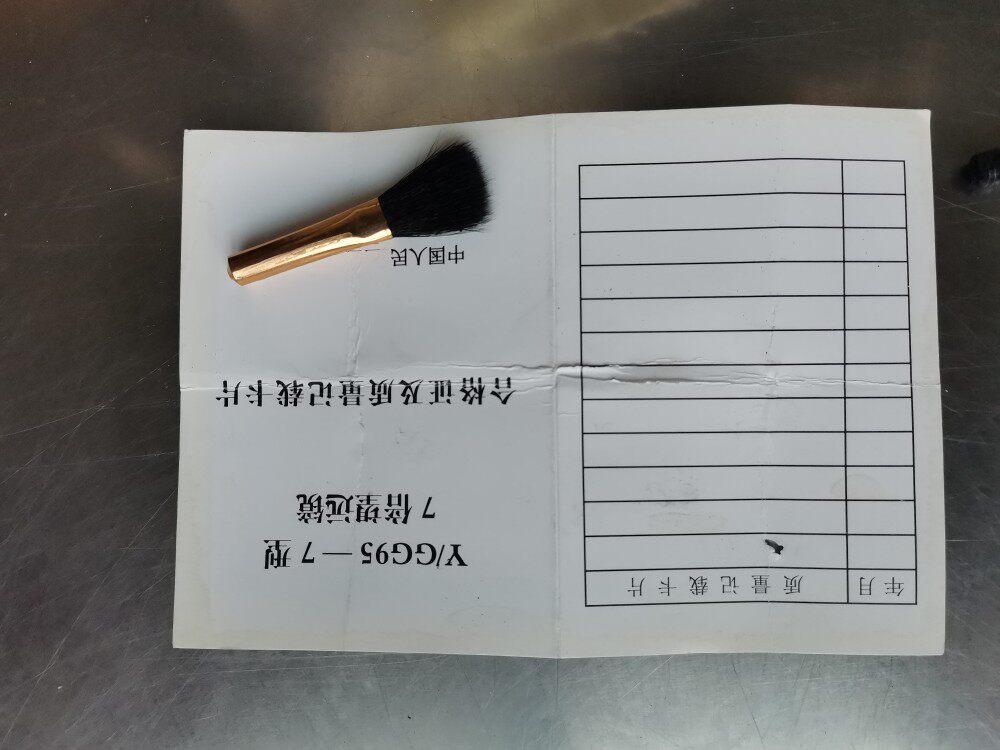 Y/GG95—7型
7倍望远镜
合格证及质量记载卡片
中国人民
年月 质量记载卡片